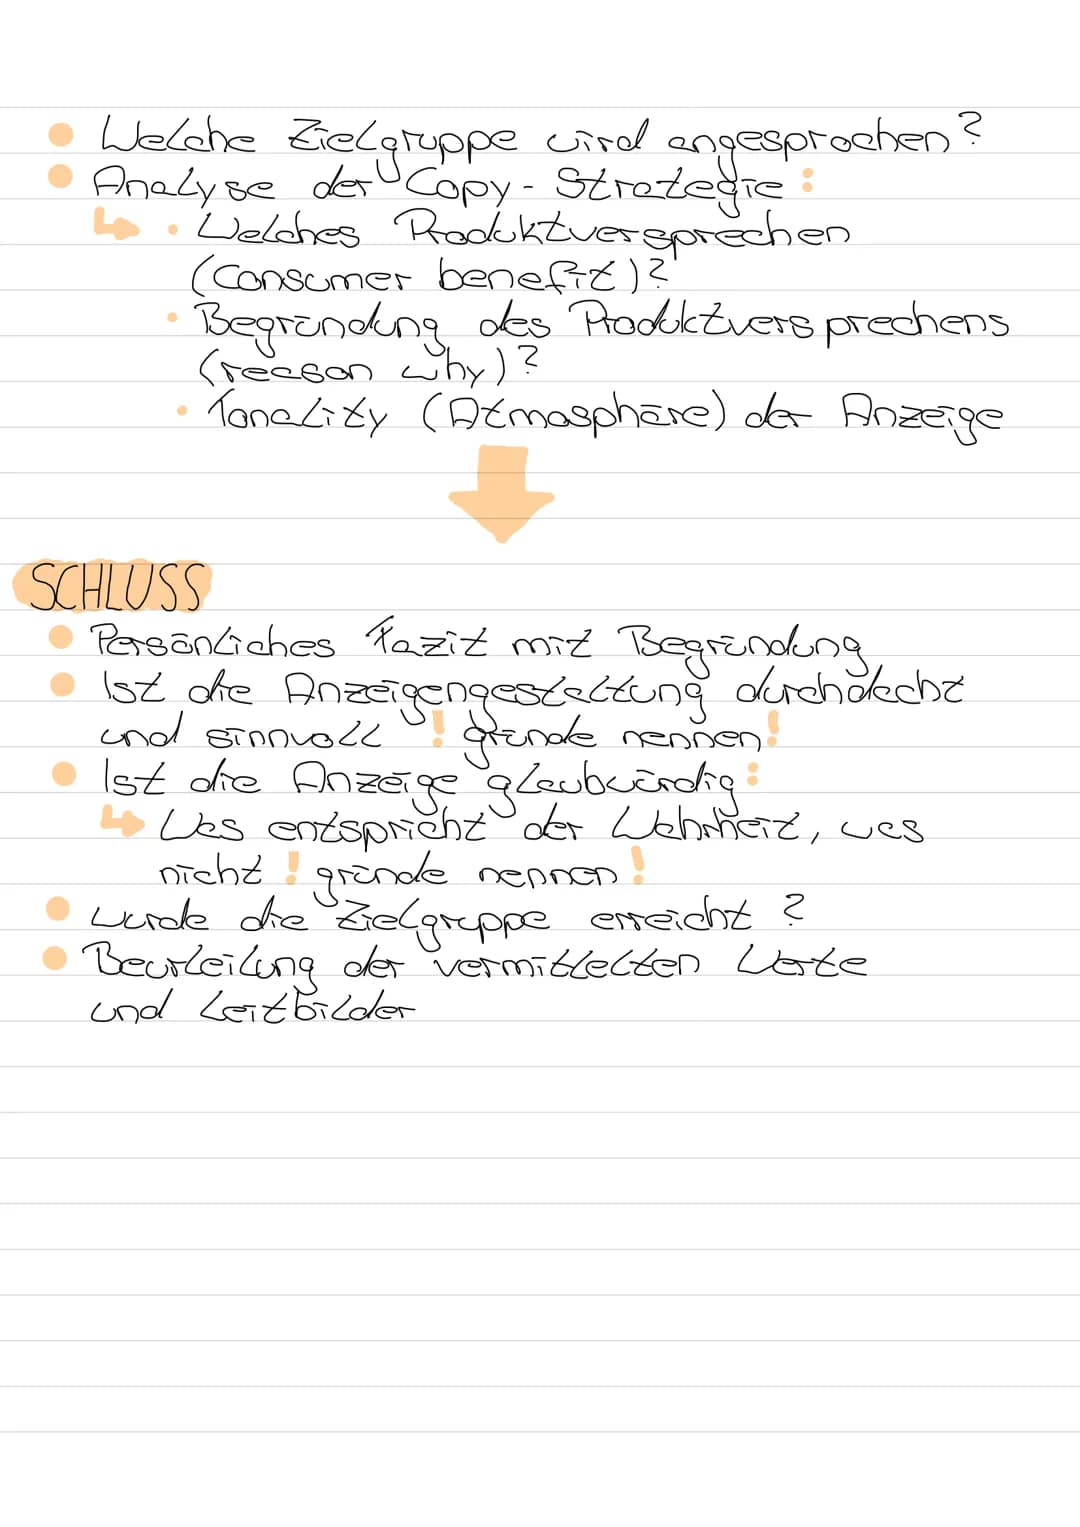 Welche Zielgruppe wird angesprochen?
Analyse der Copy-Strategie:
Welches Produktversprechen
(Consumer benefit)?
Begründung des Produktversprechens
(reason why)?
Tonality (Atmosphäre) der Anzeige
SCHLUSS
Persönliches Fazit mit Begründung
Ist die Anzeigengestaltung durchdacht
und sinnvoll ! gründe nennen!
Ist die Anzeige glaubwürdig:
Was entspricht der Wahrheit, was
nicht ! gründe nennen !
wurde die Zielgruppe erreicht ?
Beurteilung der vermittelten Werte
und Leitbilder